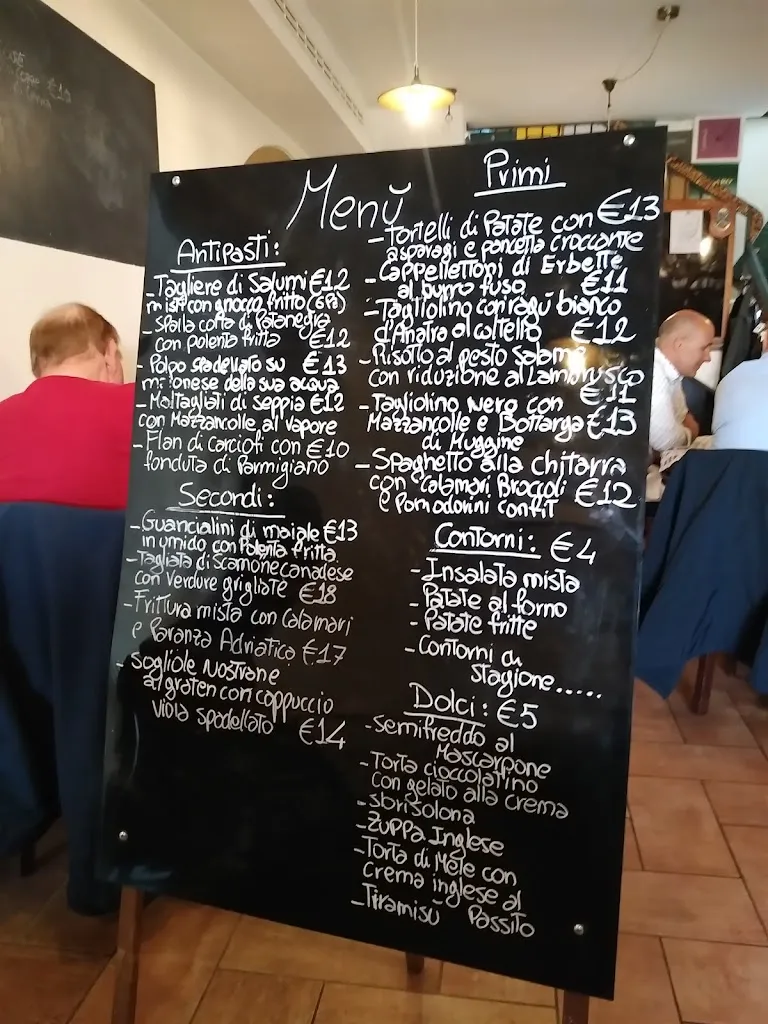 Menù
Antipasti:
- Tagliere di Salumi €12
misti con gnocco fritto (6Pz)
- Spalla cotta di Patanegra
con polenta fritta €12
- Polpo spadellato su €13
maionese della sua acqua
- Maltagliati di seppia €12
con Mazzancolle al Vapore
- Flan di carciofi con €10
fonduta di Parmigiano
Secondi:
- Guancialini di maiale €13
in umido con Polenta fritta
- Tagliata di scamone canadese
con Verdure grigliate €18
- Frittura mista con Calamari
e Paranza Adriatica €17
- Sogliole Nostrane
al graten con cappuccio
viola spadellato €14
Primi
- Tortelli di Patate con €13
asparagi e pancetta croccante
- Cappellettoni di Erbette
al burro fuso €11
- Tagliolino con ragù bianco
d'Anatra al coltello €12
- Risotto al pesto salame
con riduzione al Lambrusco
€11
- Tagliolino Nero con
Mazzancolle e Bottarga €13
di Muggine
- Spaghetto alla chitarra
con Calamari Broccoli €12
e Pomodorini confit
Contorni: €4
- Insalata mista
- Patate al forno
- Patate fritte
- Contorni di
stagione.....
Dolci: €5
- Semifreddo al
Mascarpone
- Torta cioccolatino
con gelato alla crema
- Sbrisolona
- Zuppa Inglese
- Torta di Mele con
Crema inglese al
Passito
- Tiramisù